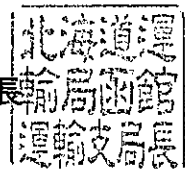 長
北海道運
輸局函館
運輸支局長